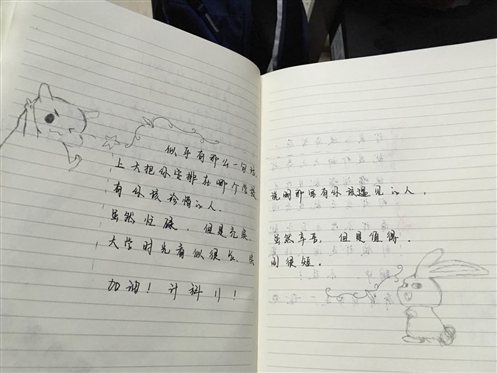 似乎有那么一句话
上天把你安排在哪个学校
说明那里有你该遇见的人.
有你该珍惜的人.
虽然忙碌, 但是充实.
虽然辛苦, 但是值得.
大学时光看似很长, 实
很短.
加油! 计科